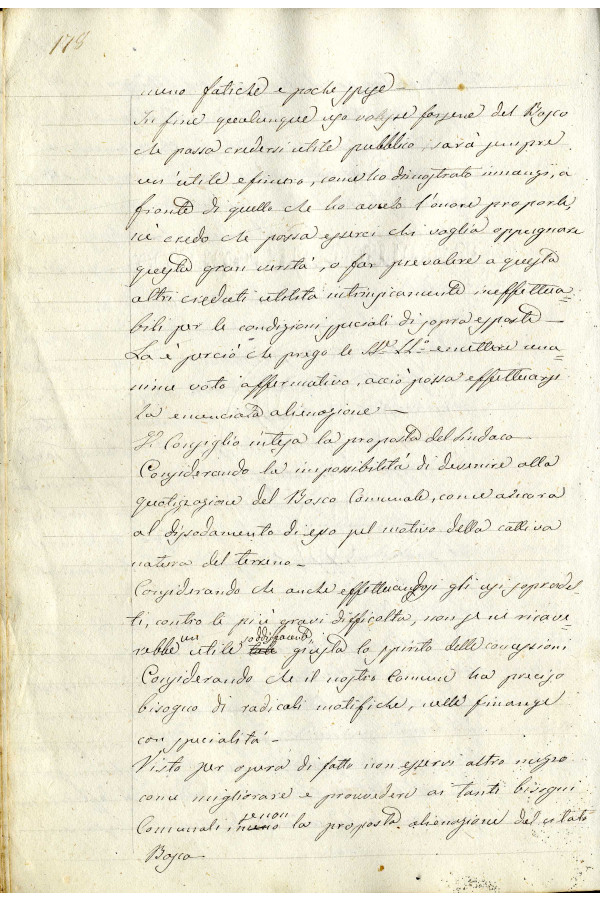 178
meno fatiche e poche spese
In fine qualunque uso volesse farsene del Bosco
che possa credersi utile pubblico, sarà sempre
un'utile efimero, come ho dimostrato innanzi, a
fronte di quello che ho avuto l'onore proporle,
nè credo che possa esserci chi voglia oppugnare
questa gran verità, o far prevalere a questa
altri creduti utilità intrinsicamente ineffettua=
bili per le condizioni speciali di sopra esposte –
La è perciò che prego le SS.e LL.e emettere una=
nime voto affermativo, acciò possa effettuarsi
la enunciata alienazione –
Il Consiglio intesa la proposta del Sindaco
Considerando la impossibilità di devenire alla
quotizzazione del Bosco Comunale, come ancora
al dissodamento di esso pel motivo della cattiva
natura del terreno –
Considerando che anche effettuandosi gli usi sopradet=
ti, contro le più gravi difficoltà, non se ne ricave=
rebbe un utile soddisfacente giusta lo spirito delle concessioni
Considerando che il nostro Comune ha preciso
bisogno di radicali motifiche, nelle finanze
con specialità –
Visto per opera di fatto non esservi altro mezzo
come migliorare e provvedere ai tanti bisogni
Comunali se non la proposta alienazione del citato
Bosco